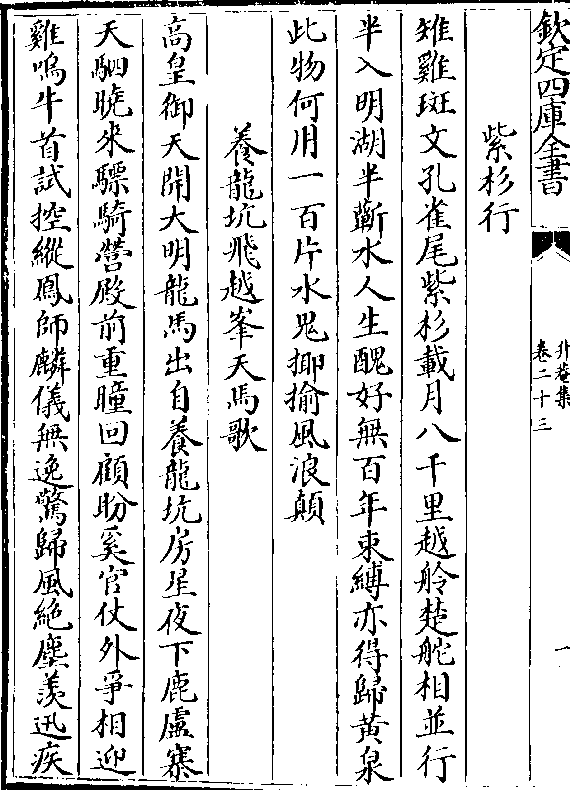 欽定四庫全書
升菴集
卷二十三
一
紫杉行
雉雞斑文孔雀尾紫杉載月八千里越舲楚舵相並行
半入明湖半蘄水人生醜好無百年束縛亦得歸黃泉
此物何用一百片水鬼揶揄風浪顛
養龍坑飛越峯天馬歌
高皇御天開大明龍馬出自養龍坑房星夜下鹿盧寨
天駟曉來驃騎營殿前重瞳回顧盼奚官仗外爭相迎
雞鳴牛首試控縱鳳師麟儀無逸驚歸風絕塵羨迅疾